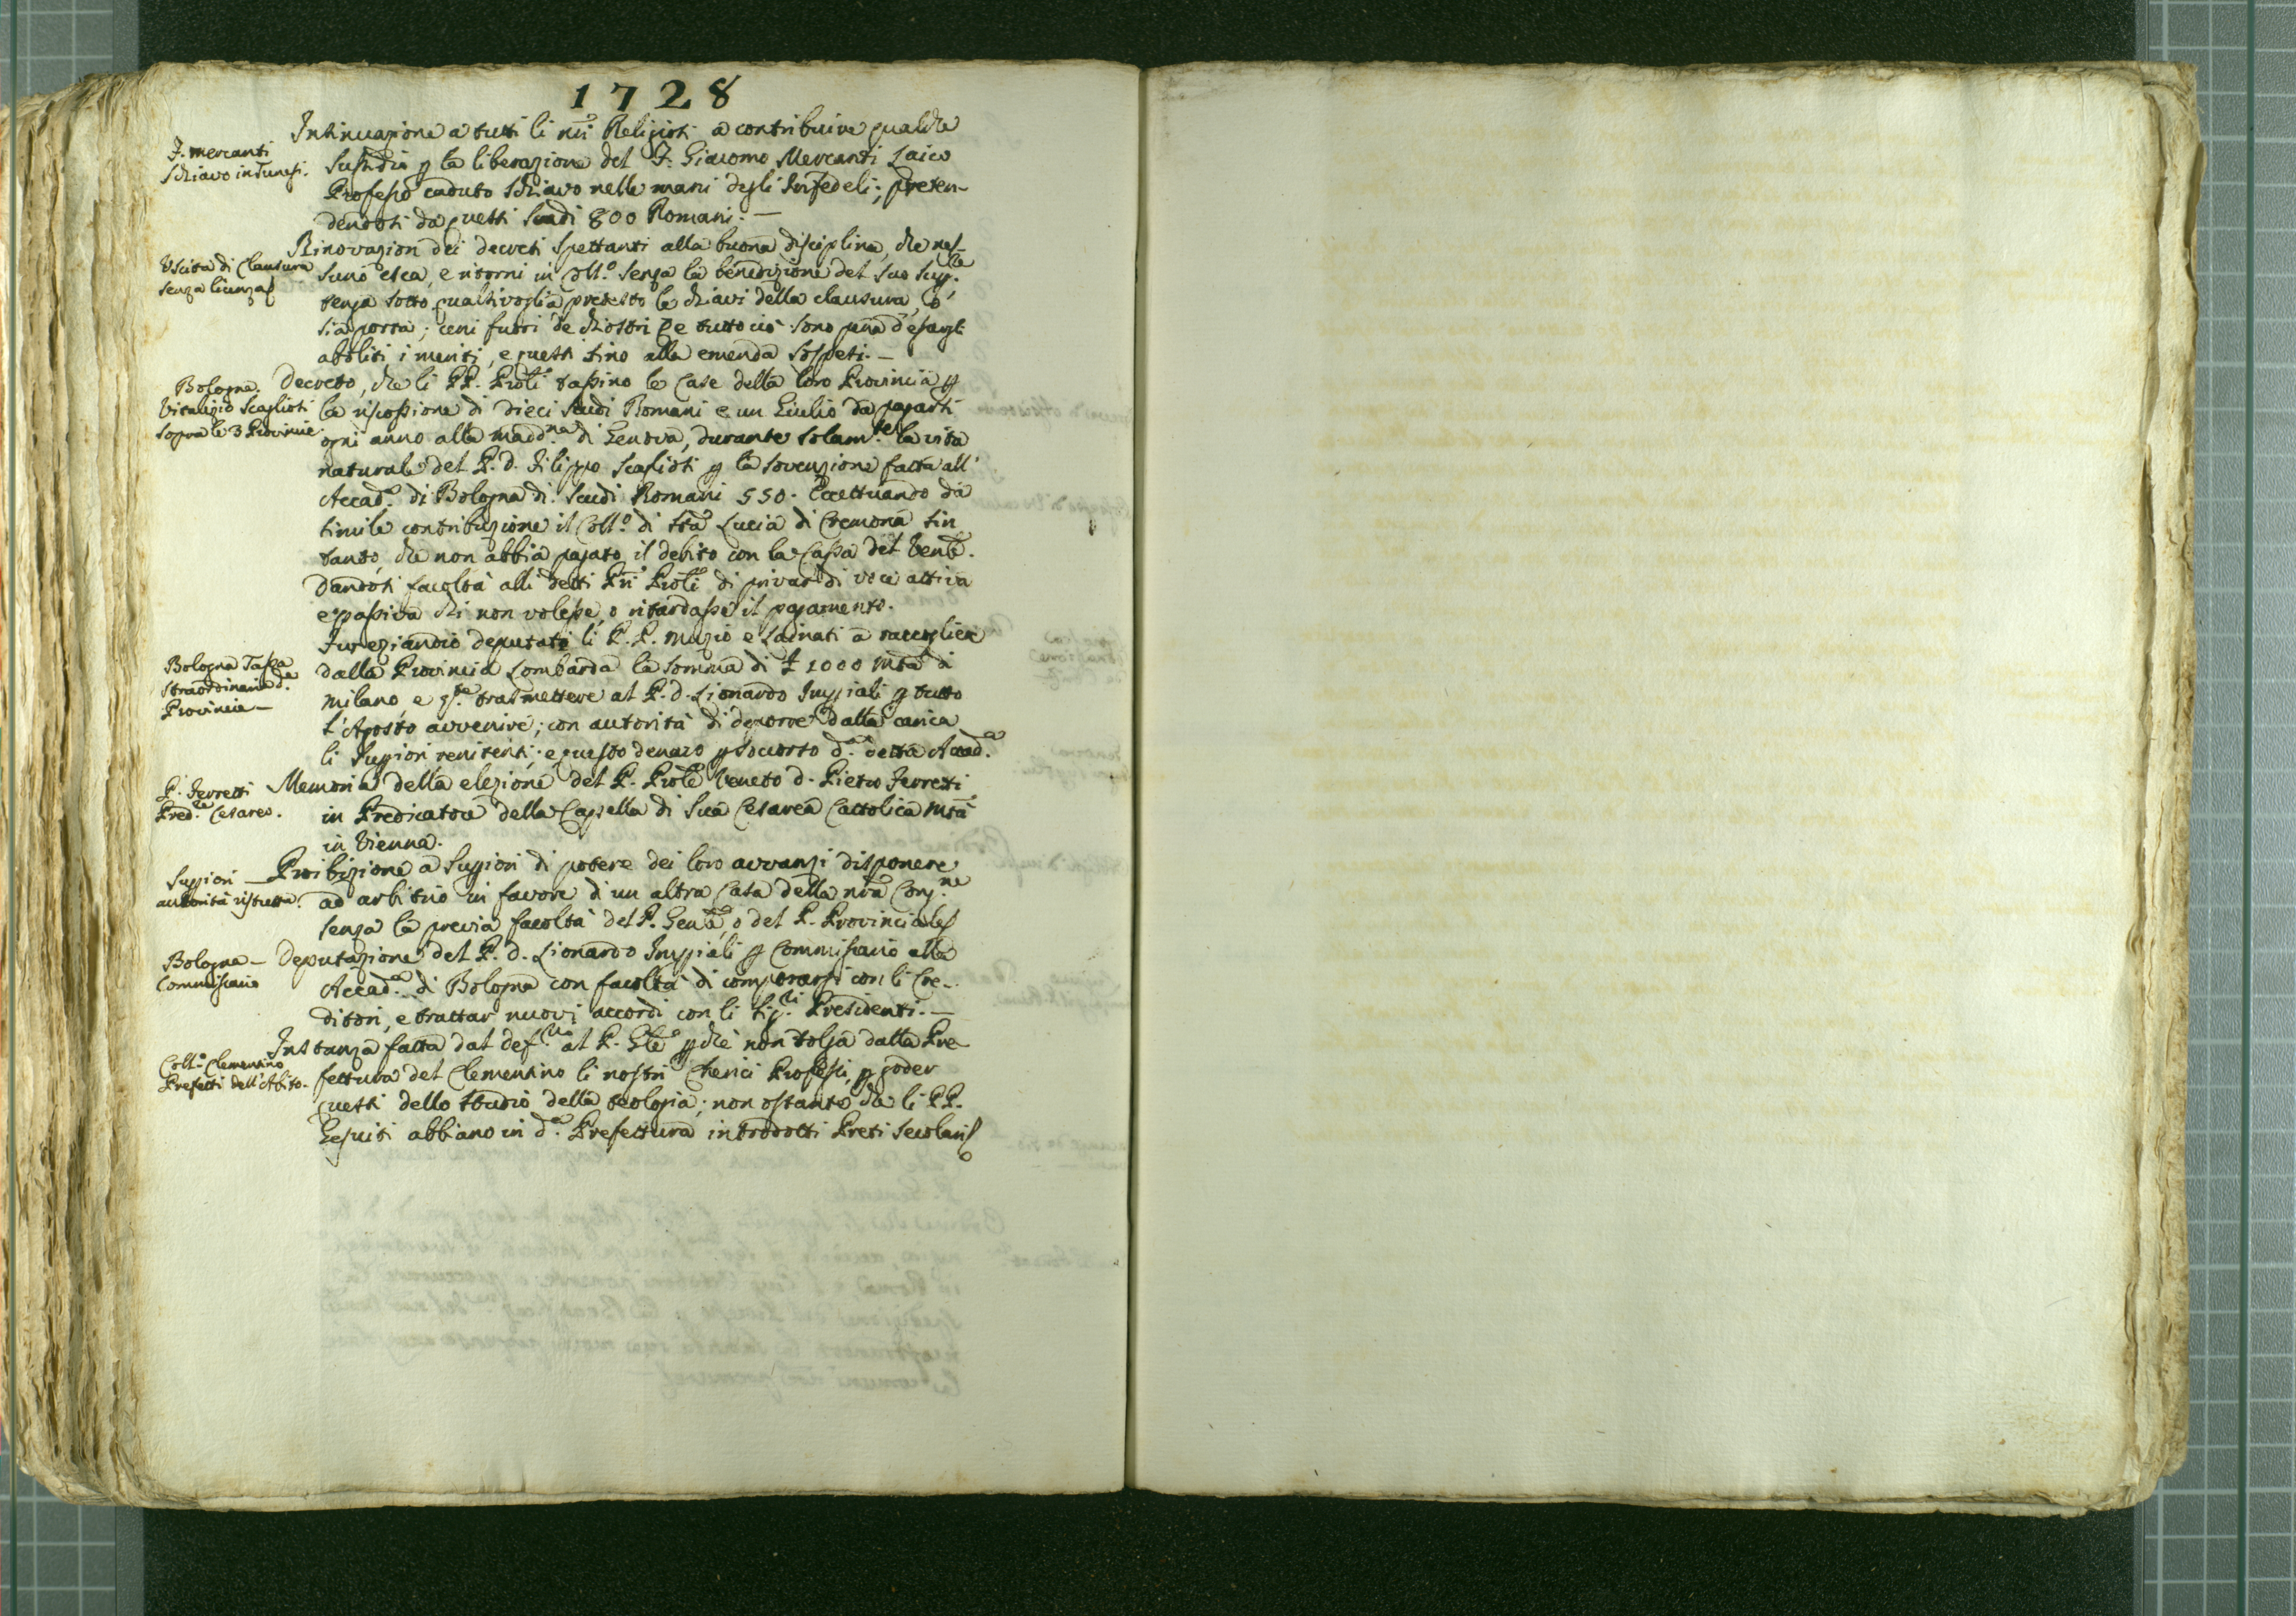 1728
F. Mercanti
schiavo in Tunesi.
Intinuazione a tutti li nri Religiosi a contribuire qualche
sussidio p la liberazione del F. Giacomo Mercanti Laico
Professo caduto schiavo nelle mani degli Infedeli; preten-
dendosi da questi scudi 800 Romani. —
Uscita di Clausura
senza licenza
Rinovazion dei decreti spettanti alla buona disciplina, che nes-
suno esca, e ritorni in Coll.º senza la benedizione del suo Sup.re
tenga sotto qualsivoglia pretesto le chiavi della clausura, o
sia porta; ceni fuori de chiostri e tutto ciò sono pena
aboliti i meriti, e questi sino alla emenda sospesi. —
Bologna.
Vitalizio Scaglioti
sopra le 3 Provincie.
Decreto, che li PP. Proli tassino le Case della loro Provincia p
la riscossione di dieci scudi Romani e un Giulio da pagarsi
ogni anno alla Madd.na di Genova, durante solam.te la vita
naturale del P. D. Filippo Scaglioti p la sovenzione fatta all'
Accad.a di Bologna di scudi Romani 550. Eccettuando da
simile contribuzione il Coll.º di Sta Lucia di Cremona sin
tanto, che non abbia pagato il debito con la Cassa del Venle.
Dandosi facoltà alli detti Pri Proli di privar di voce attiva
e passiva chi non volesse, o ritardasse il pagamento.
Bologna Tassa
straordinaria d.a
Provincia —
Fur eziandio deputati li P.P. Muzio e Ladnati a raccogliere
dalla Provincia Lombarda la somma di £ 1000 mta di
Milano, e trasmettere al P. D. Lionardo Imppiali p tutto
l'Agosto avvenire; con autorità di deporre dalla carica
li Suppiori renitenti; e questo denaro p socorso d.a detta Accad.a
P. Ferretti
Pred.re Cesareo.
Memoria della elezione del P. Prole Veneto D. Pietro Ferretti
in Predicatore della Cappella di Sua Cesarea Cattolica Mtà
in Vienna.
Suppiori —
autorità ristretta.
Proibizione a Suppiori di potere dei loro avvanzi disponere
ad arbitrio in favore di un altra Casa della nra Cong.ne
senza la previa facoltà del P. Genle, o del P. Provinciale
Bologna —
Commissario
Deputazione del P. D. Lionardo Imppiali p Commissario alla
Accad.a di Bologna con facoltà di comporarsi con li Cre-
ditori, e trattar nuovi accordi con li Sig.ri Presidenti. —
Coll.º Clementino
Prefetti dell'Abito.
Instanza fatta dal def.rio al P. Gle p che non tolga dalla Pre-
fettura del Clementino li nostri Cherici Professi, p goder
questi dello studio della teologia; non ostante che li PP.
Gesuiti abbiano in d.a Prefettura introdotti Preti Secolari